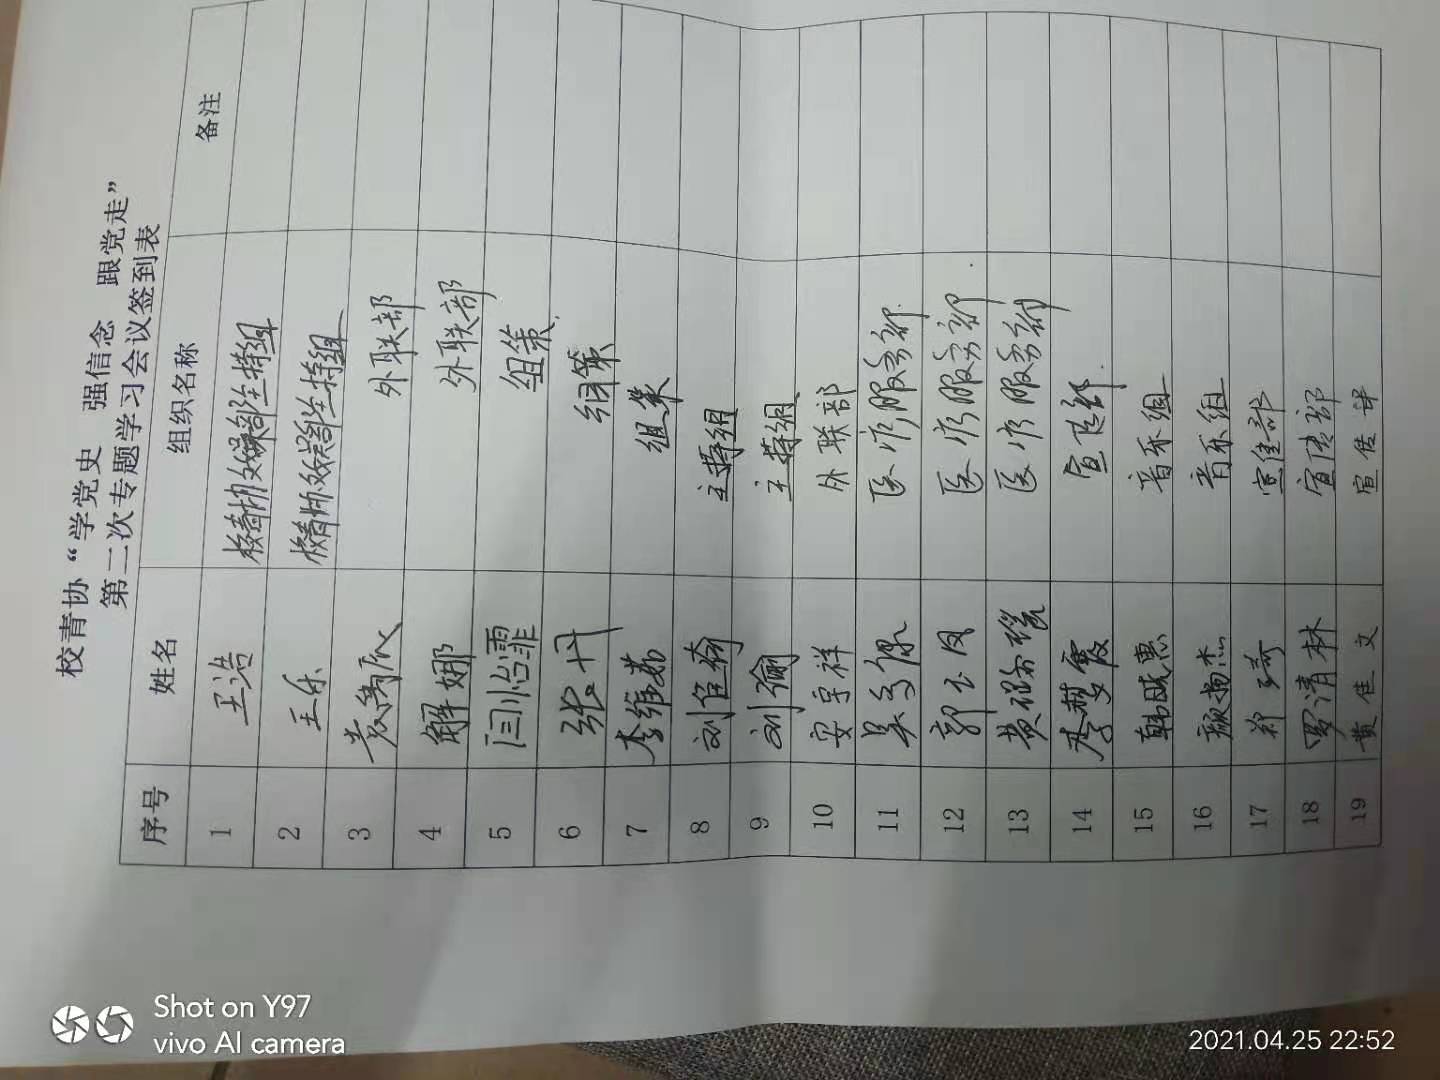 校青协“学党史 强信念 跟党走”
第二次专题学习会议签到表
序号 姓名 组织名称 备注
1 王浩 校青协文娱部主持组
2 王乐 校青协文娱部主持组
3 外联部
4 解娜 外联部
5 闫怡霏 组策
6 张丹 组策
7 李维茹 组策
8 刘佳 主持组
9 刘瑜 主持组
10 安宇祥 外联部
11 医疗服务部
12 郭玉凤 医疗服务部
13 黄 医疗服务部
14 李梦霞 宣传部
15 韩晓惠 音乐组
16 杰 音乐组
17 郑琦 宣传部
18 罗清林 宣传部
19 黄佳文 宣传部
Shot on Y97
vivo AI camera
2021.04.25 22:52